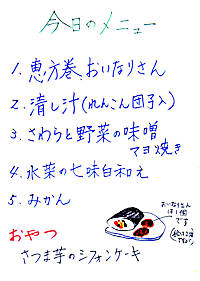 今日のメニュー
1. 恵方巻、おいなりさん
2. 清し汁(れんこん団子入)
3. さわらと野菜の味噌
マヨ焼き
4. 水菜の七味白和え
5. みかん
おいなりさん
は1個
です
おやつ
さつま芋のシフォンケーキ